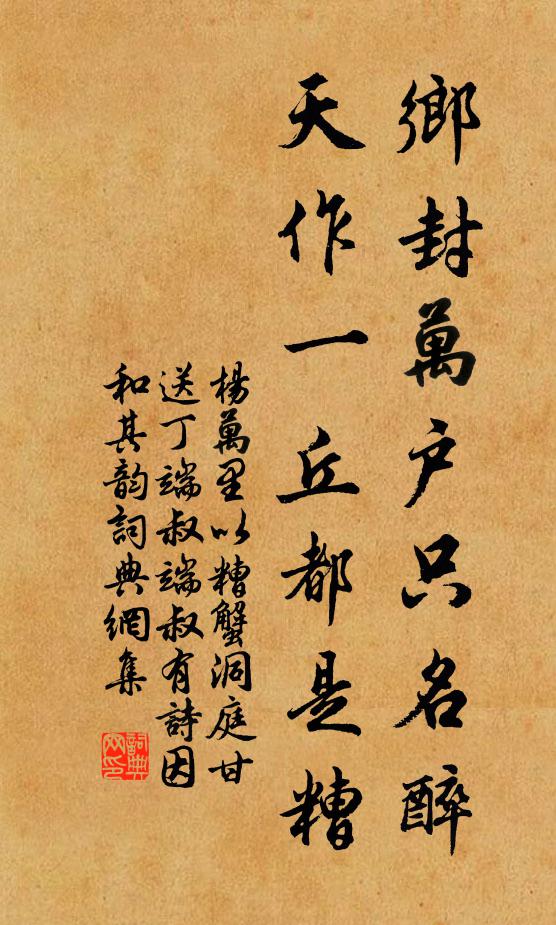 鄉封萬户只名醉
天作一丘都是糟
楊萬里以糟蟹洞庭甘
送丁端叔端叔有詩因
和其韵詞典網集
詞典網印